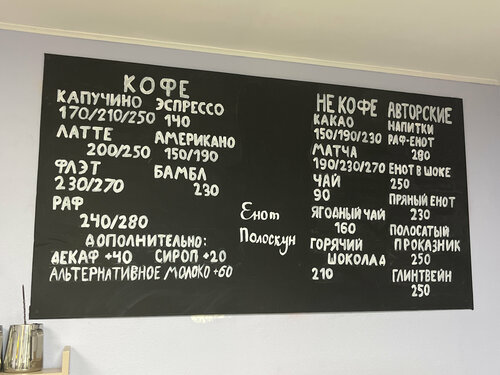 КОФЕ
КАПУЧИНО
170/210/250
ЛАТТЕ
200/250
ФЛЭТ
230/270
РАФ
240/280
ЭСПРЕССО
140
АМЕРИКАНО
150/190
БАМБЛ
230
ДОПОЛНИТЕЛЬНО:
ДЕКАФ +40 СИРОП +20
АЛЬТЕРНАТИВНОЕ МОЛОКО +60
Енот
Полоскун
НЕ КОФЕ
КАКАО
150/190/230
МАТЧА
190/230/270
ЧАЙ
90
ЯГОДНЫЙ ЧАЙ
160
ГОРЯЧИЙ
ШОКОЛАД
210
АВТОРСКИЕ
НАПИТКИ
РАФ-ЕНОТ
280
ЕНОТ В ШОКЕ
250
ПРЯНЫЙ ЕНОТ
230
ПОЛОСАТЫЙ
ПРОКАЗНИК
250
ГЛИНТВЕЙН
250